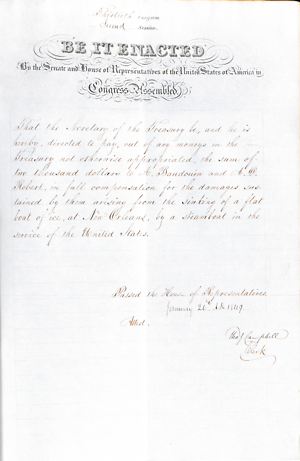 Thirtieth Congress
Second Session
BE IT ENACTED
By the Senate and House of Representatives of the United States of America in
Congress Assembled
That the Secretary of the Treasury be, and he is
hereby, directed to pay, out of any moneys in the
Treasury not otherwise appropriated, the sum of
two thousand dollars to A. Baudouin and A. D.
Robert, in full compensation for the damages sus
tained by them arising from the sinking of a flat
boat of ice, at New Orleans, by a steamboat in the
service of the United States.
Passed the House of Representatives
January 1849.
Attest.
Thos. J. Campbell
Clerk